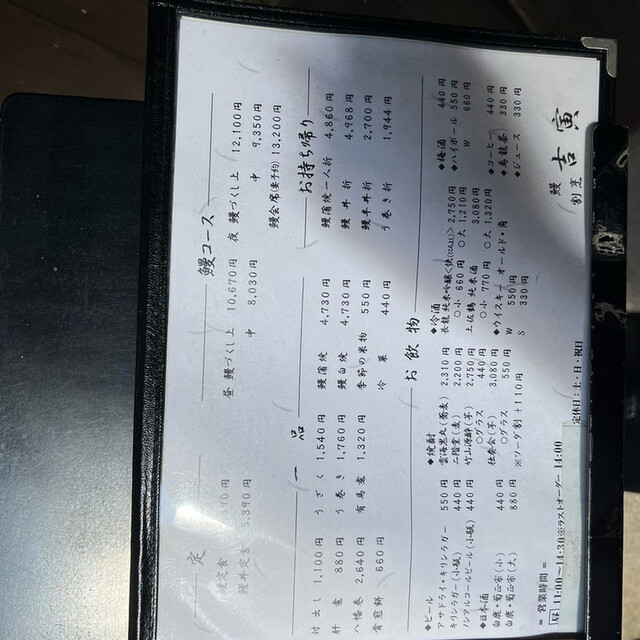 定
定食 390円
鰻丼定食 5,390円
鰻コース
昼 鰻づくし 上 10,670円
中 8,030円
夜 鰻づくし 上 12,100円
中 9,350円
鰻会席(要予約) 13,200円
一品
付出し 1,100円
肝煮 880円
八幡巻 2,640円
骨煎餅 660円
うざく 1,540円
う巻き 1,760円
有馬煮 1,320円
鰻蒲焼 4,730円
鰻白焼 4,730円
季節の果物 550円
冷菓 440円
お持ち帰り
鰻蒲焼一人折 4,860円
鰻丼折 4,968円
鰻半丼折 2,700円
う巻き折 1,944円
お飲物
◆ビール
アサドライ・キリンラガー 550円
キリンラガー(小瓶) 440円
ノンアルコールビール(小瓶) 440円
◆日本酒
白鹿・菊正宗(小) 440円
白鹿・菊正宗(大) 880円
◆焼酎
雲海黒丸(蕎麦) 2,310円
二階堂(麦) 2,200円
竹山源酔(芋) 2,750円
○グラス 440円
杜奏会(芋) 3,080円
○グラス 550円
※ソーダ割+110円
◆冷酒
長龍 純米吟醸 2,750円
○小 660円 ○大 1,210円
土佐鶴 純米酒 3,080円
○小 770円 ○大 1,320円
◆ウイスキー オールド・角
W 550円
S 330円
◆梅酒 440円
◆ハイボール 550円
W 660円
◆コーヒー 440円
◆烏龍茶 330円
◆ジュース 330円
=営業時間=
[昼]11:00〜14:30※ラストオーダー14:00
定休日:土・日・祝日
鰻
割烹
吉寅